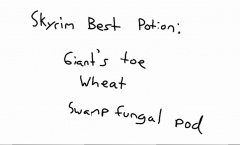 Skyrim Best Potion:
Giant's toe
Wheat
Swamp fungal pod